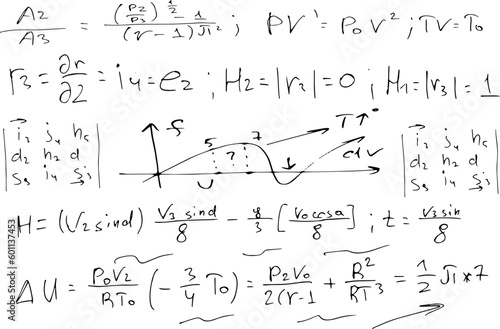 A2/A3 = ((P2/P3)^(1/2) - 1)/((r-1)Jι²) ; PV' = P₀V² ; TV = T₀
r3 = ∂r/∂2 = i4 = e2 ; H2 = |r2| = 0 ; H1 = |r3| = 1
i2 j4 hs
d2 h2 d
S9 i4 S3
f 5 7 ? U T↑° dV
i2 j4 hs
d2 h2 d
S9 i4 S3
H = (V2 sin d) V3 sin d/8 - 8/3 [V₀ cos a/8] ; t = V3 sin/8
ΔU = P₀V2/RT₀ (-3/4 T₀) = P2V₀/2(r-1 + R²/RT³ = 1/2 Jι*7
Adobe Stock | #601137453